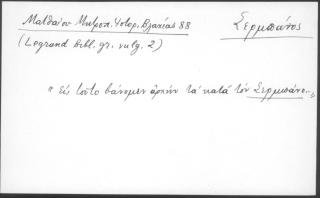 Ματθαίου Μητροπ. Ιστορ. Βλαχίας 88
Σερμπάνος
(Legrand Bibl. gr. vulg. 2)
"Εἰς τοῦτο βάνομεν ἀρχὴν τὰ κατὰ τὸν Σερμπάνο..."